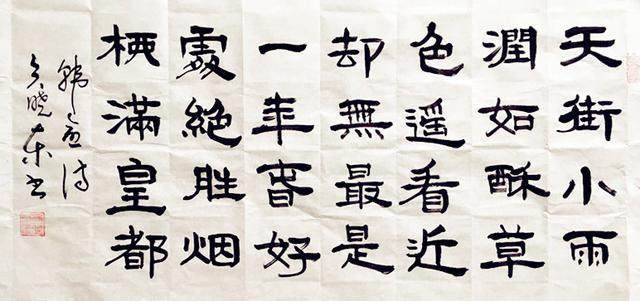 天街小雨
潤如酥草
色遥看近
却無最是
一年春好
處絶胜烟
柳滿皇都
韓愈诗
晓东书